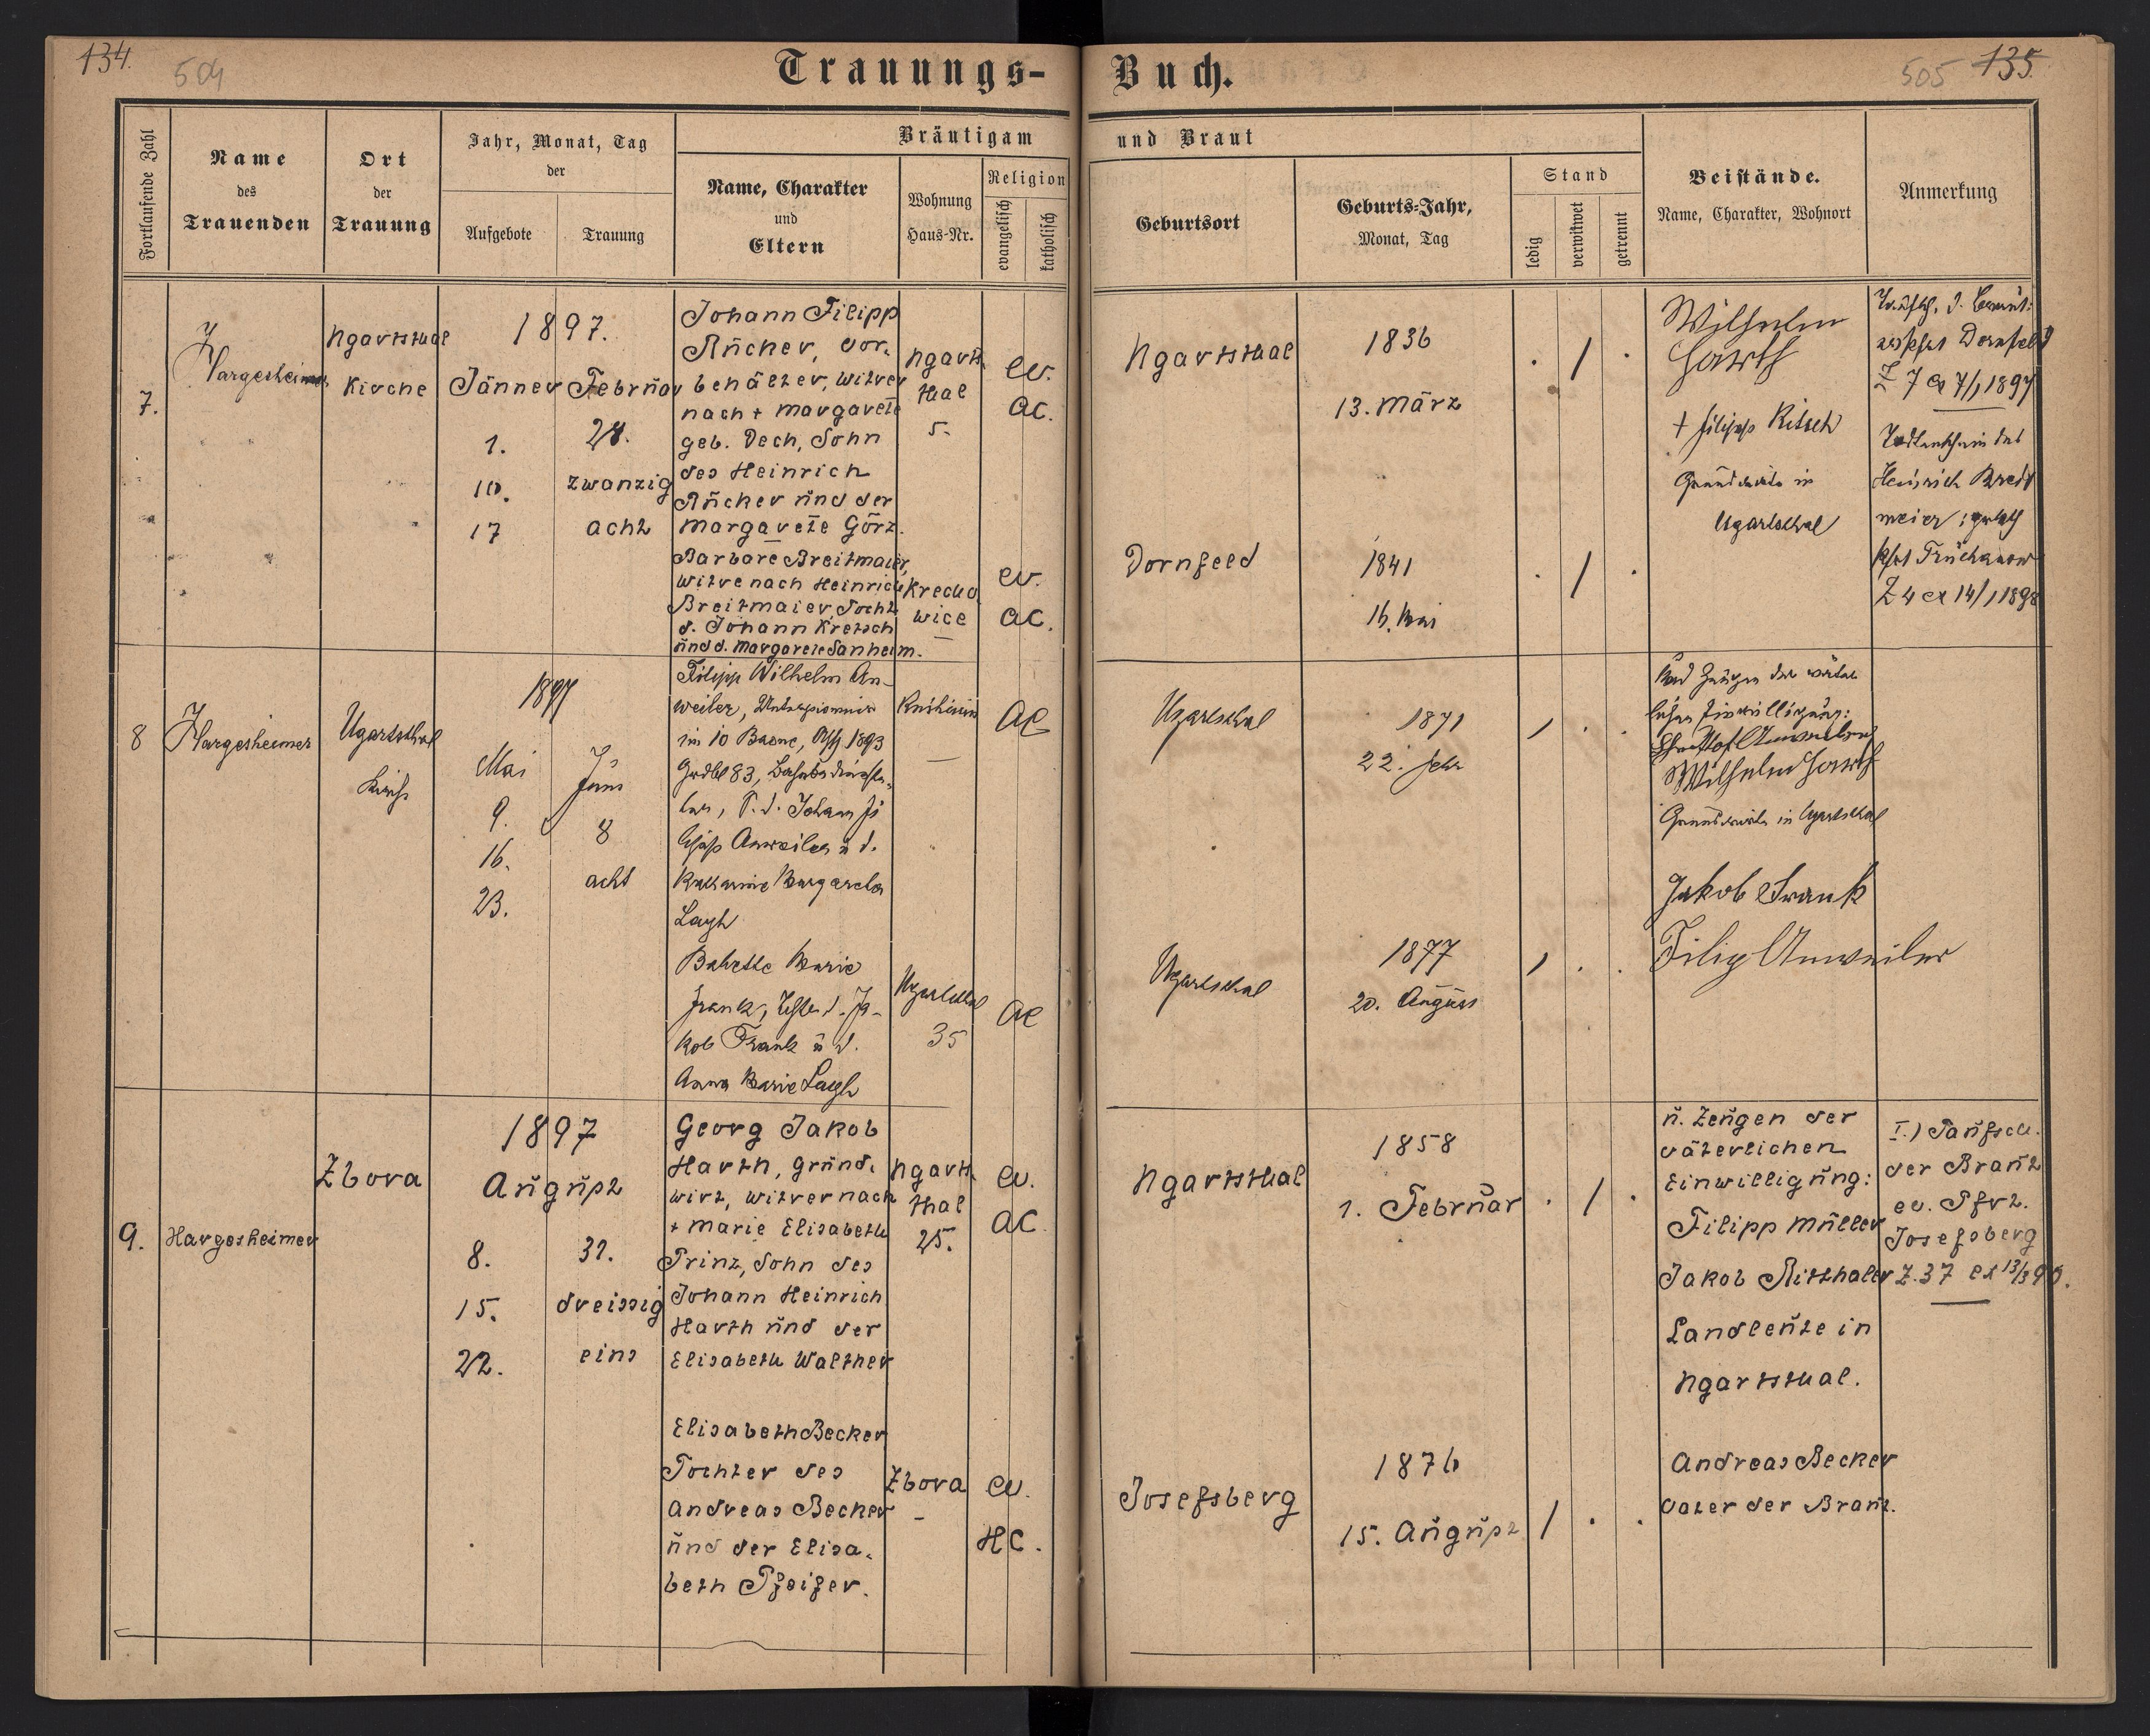 134.
504
Trauungs-
Buch.
505
135.
Fortlaufende Zahl
Name
des
Trauenden
Ort
der
Trauung
Jahr, Monat, Tag
der
Aufgebote
Trauung
Bräutigam
Name, Charakter
und
Eltern
Wohnung
Haus-Nr.
Religion
evangelisch
katholisch
und Braut
Geburtsort
Geburts-Jahr,
Monat, Tag
Stand
ledig
verwitwet
getrennt
Beistände.
Name, Charakter, Wohnort
Anmerkung
7.
J Hargesheimer
Ugartsthal
Kirche
1897.
Jänner
1.
10.
17
Februar
28.
zwanzig
acht
Johann Filipp
Rücker, Vor-
behälter, Witver
nach + Margarete
geb. Dech, Sohn
des Heinrich
Rücker und der
Margarete Görz.
Ugarts-
thal
5.
ev.
AC.
Barbare Breitmaier,
Witve nach Heinrich
Breitmaier, Tocht.
d. Johann Kretsch
und d. Margarete Sanheim.
Krecho
wice
ev.
AC.
Ugartsthal
1836
13. März
. / .
Dornfeld
1841
16. Mai
. / .
Wilhelm
Harth
+ Filipp Ritsch
Grundwirte in
Ugartsthal
Taufsch. d. Bräut.
Dornfeld
Z 7 ex 7/1 1897
Todtenschein des
Heinrich Breit
meier
Z 4 ex 14/1 1898
8
J Hargesheimer
Ugartsthal
Kirche
1897
Mai
9.
16.
23.
Juni
8
acht
Filipp Wilhelm An-
weiler,
im 10 Baone, 1893
Grdbl 83,
Johann Fi
Anweiler u d.
Katharine Margareta
Lagh
Knihinin
—
AC
Babette Marie
Frank, d. Ja-
kob Frank u d.
Anna Marie Lagh
Ugartsthal
35
AC
Ugartsthal
1871
22. Febr
/ . .
Ugartsthal
1877
20. August
/ . .
und Zeugen der väter
lichen Einwilligung:
Anweiler
Wilhelm Harth
Grundwirte in Ugartsthal
Jakob Frank
Filip Anweiler
9.
Hargesheimer
Zbora
1897
August
8.
15.
22.
31.
dreissig
eins
Georg Jakob
Harth, Grund-
wirt, Witver nach
+ Marie Elisabeth
Prinz, Sohn des
Johann Heinrich
Harth und der
Elisabeth Walther
Ugarts-
thal
25.
ev.
AC.
Elisabeth Becker
Tochter des
Andreas Becker
und der Elisa-
beth Pfeifer.
Zbora
-
ev.
HC.
Ugartsthal
1858
1. Februar
. / .
Josefsberg
1876
15. August
/ . .
u. Zeugen der
väterlichen
Einwilligung:
Filipp Müller
Jakob Ritthaler
Landleute in
Ugartsthal.
Andreas Becker
Vater der Braut.
I.) Taufsch.
der Braut
ev. Pfrt.
Josefsberg
Z. 37 ex 13/3 96.